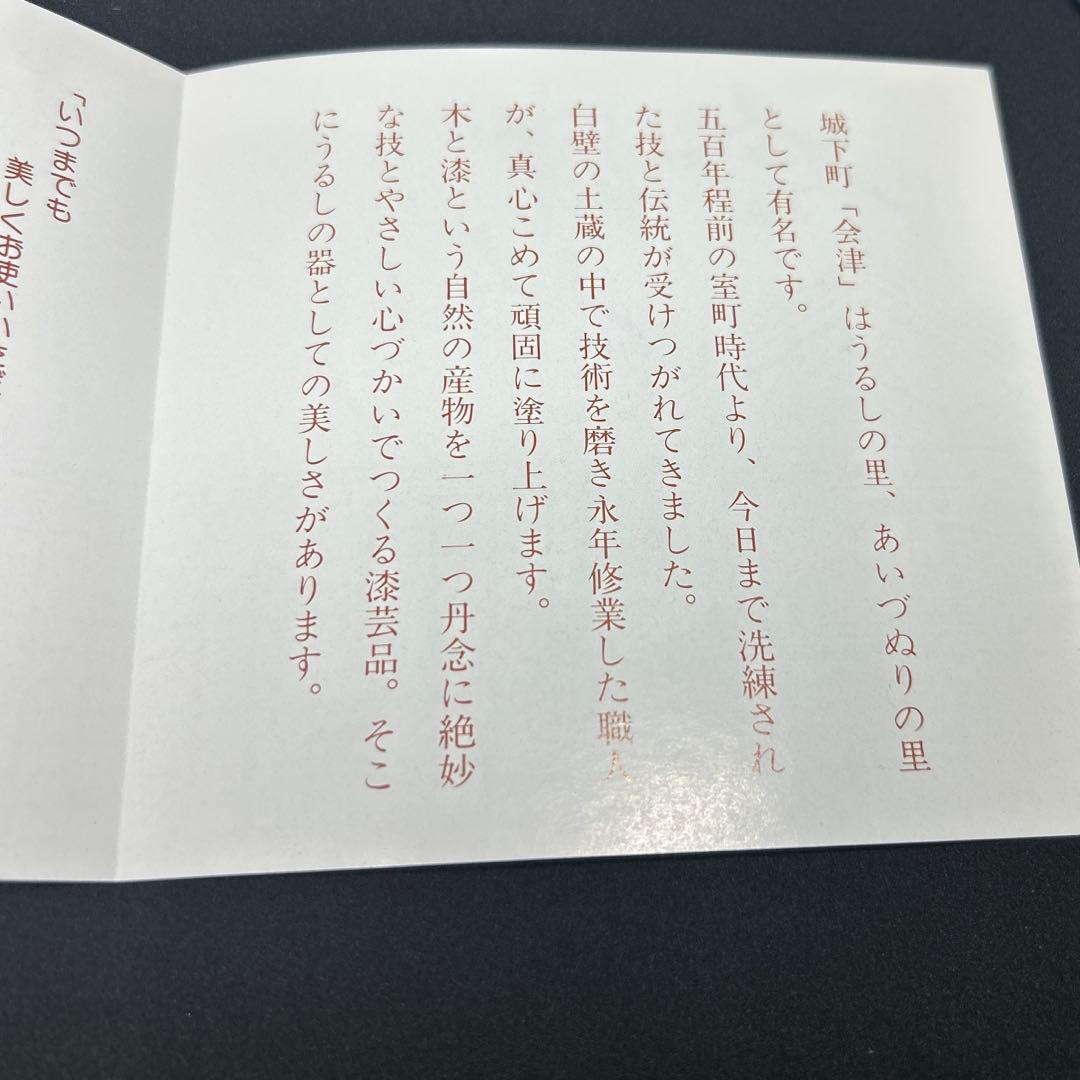 城下町「会津」はうるしの里、あいづぬりの里
として有名です。
五百年程前の室町時代より、今日まで洗練され
た技と伝統が受けつがれてきました。
白壁の土蔵の中で技術を磨き永年修業した職人
が、真心こめて頑固に塗り上げます。
木と漆という自然の産物を一つ一つ丹念に絶妙
な技とやさしい心づかいでつくる漆芸品。そこ
にうるしの器としての美しさがあります。
「いつまでも
美しくお使いいただ